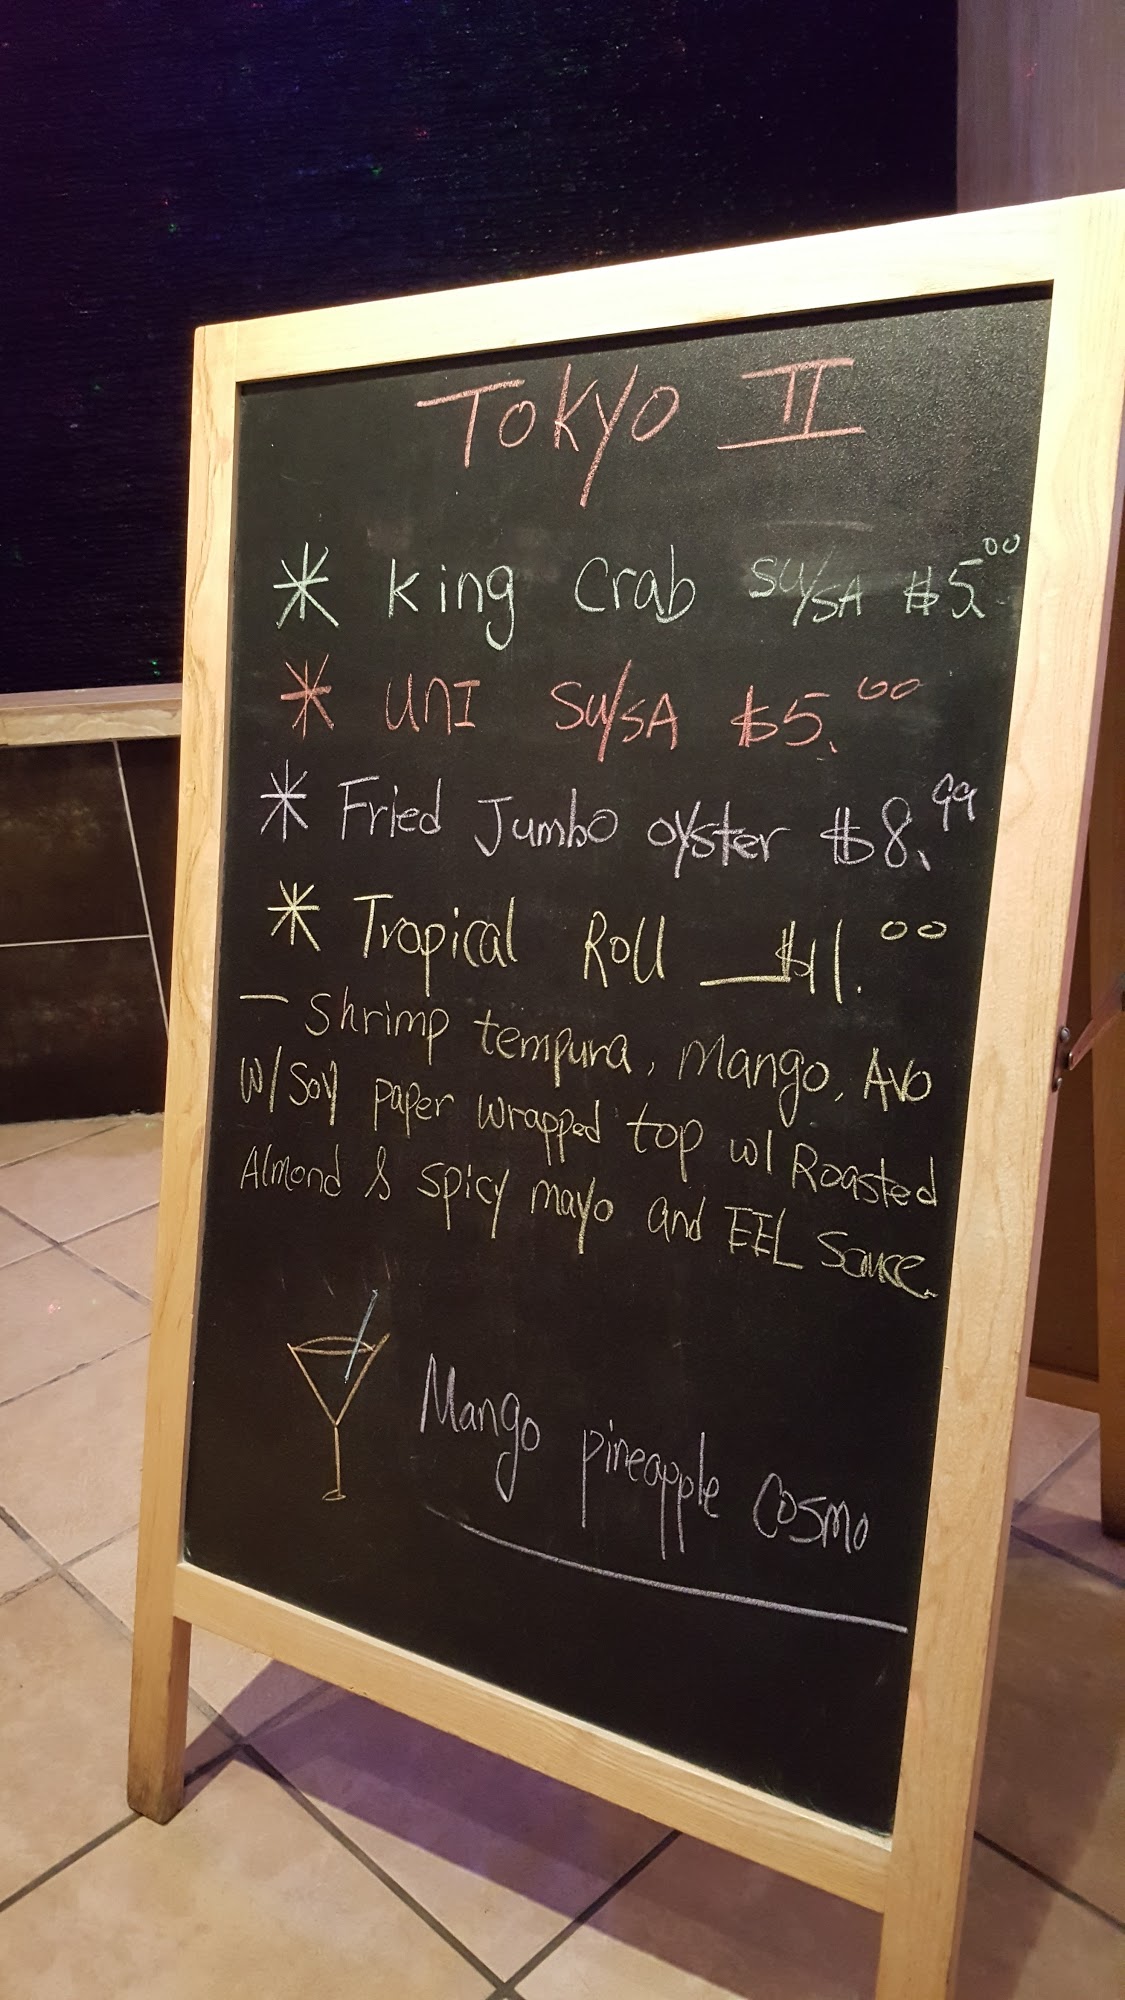 TOKYO II
* King Crab SU/SA $5.00
* UNI SU/SA $5.00
* Fried Jumbo oyster $8.99
* Tropical Roll $11.00
- Shrimp tempura, Mango, Avo
W/ Soy paper wrapped top w/ Roasted
Almond & spicy mayo and EEL Sauce.
Mango pineapple Cosmo